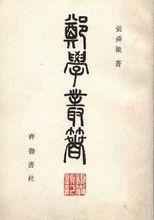 張舜徽 著
鄭學叢著
齊魯書社